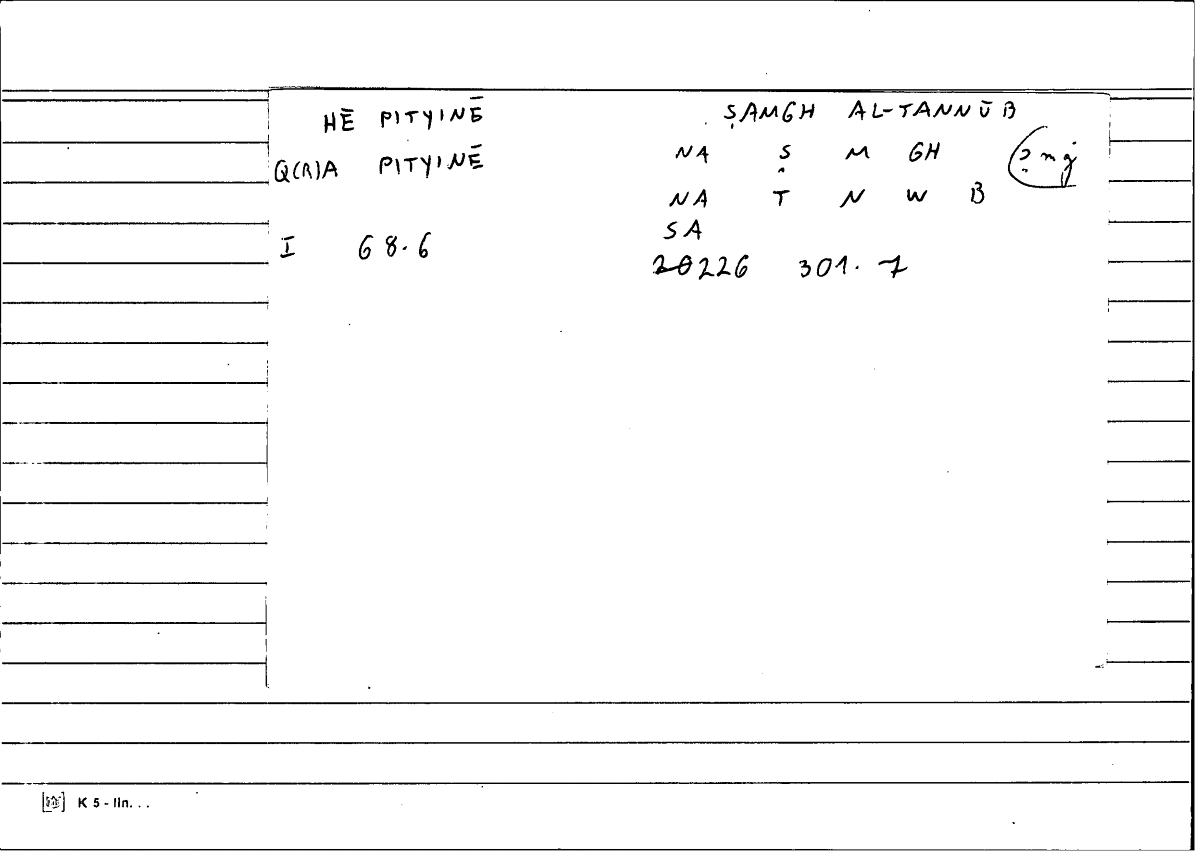 HĒ PITYINĒ ṢAMGH AL-TANNŪB
Q(R)A PITYINĒ NA Ṣ M GH
NA T N W B
SA
I 68.6 226 301.7
K 5 - lin. . .